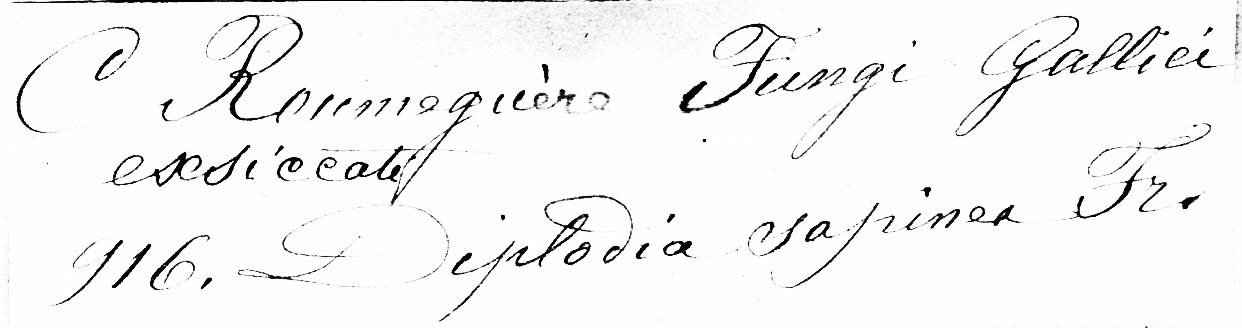 C Roumeguère Fungi Gallici
exsiccati
916. Diplodia sapinea Fr.